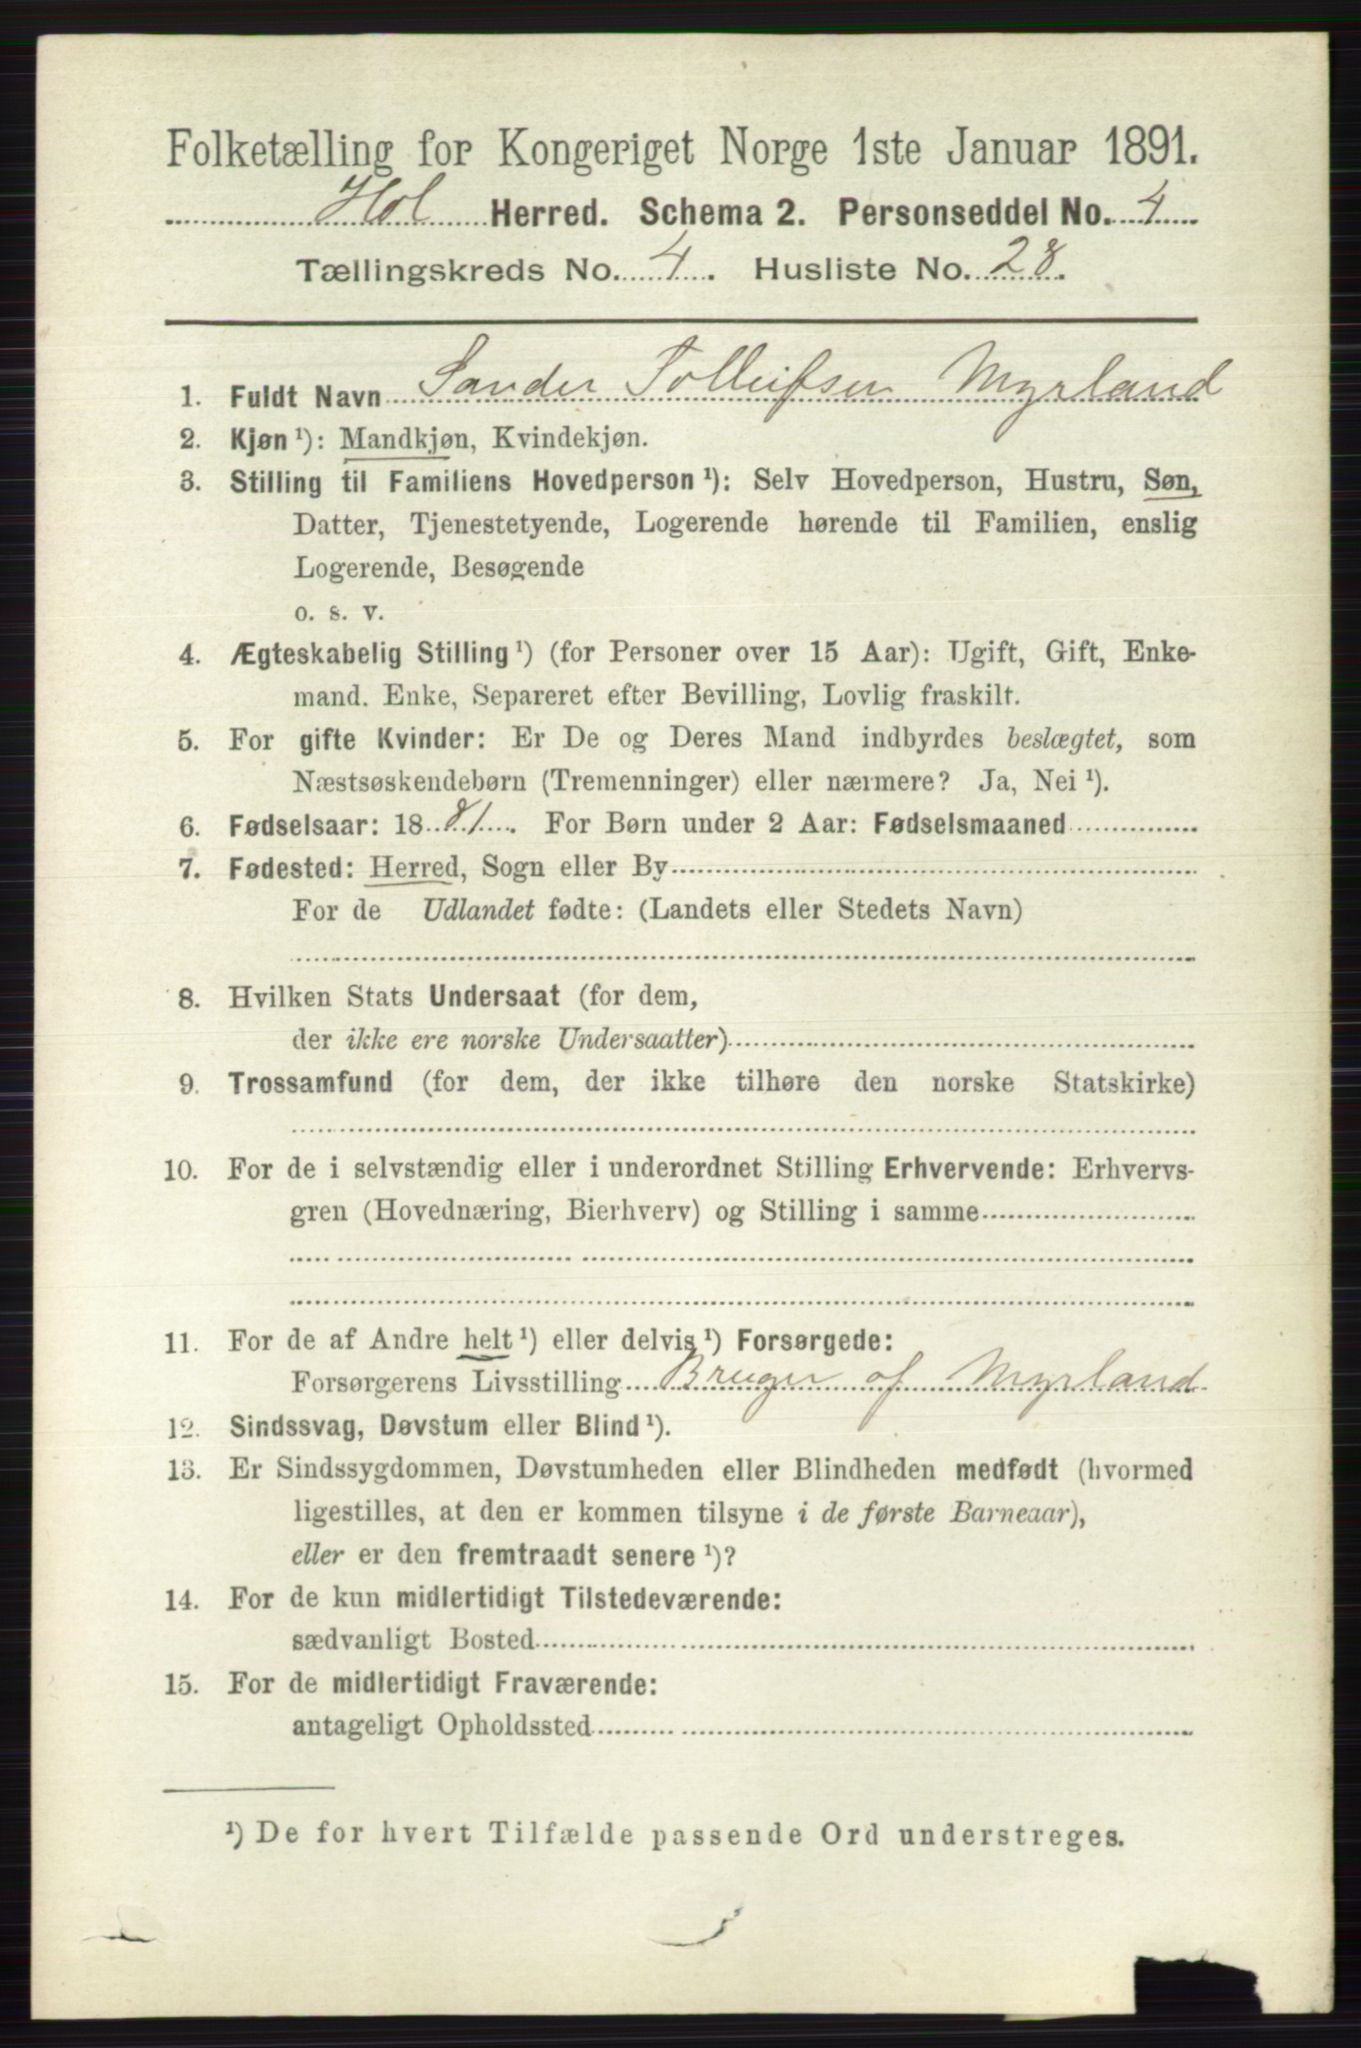 Folketælling for Kongeriget Norge 1ste Januar 1891.
Hol Herred. Schema 2. Personseddel No. 4
Tællingskreds No. 4. Husliste No. 28.
1. Fuldt Navn Sander Tolleifsen Myrland
2. Kjøn ¹): Mandkjøn, Kvindekjøn.
3. Stilling til Familiens Hovedperson ¹): Selv Hovedperson, Hustru, Søn,
Datter, Tjenestetyende, Logerende hørende til Familien, enslig
Logerende, Besøgende
o. s. v.
4. Ægteskabelig Stilling ¹) (for Personer over 15 Aar): Ugift, Gift, Enke-
mand. Enke, Separeret efter Bevilling, Lovlig fraskilt.
5. For gifte Kvinder: Er De og Deres Mand indbyrdes beslægtet, som
Næstsøskendebørn (Tremenninger) eller nærmere? Ja, Nei ¹).
6. Fødselsaar: 1881. For Børn under 2 Aar: Fødselsmaaned
7. Fødested: Herred, Sogn eller By
For de Udlandet fødte: (Landets eller Stedets Navn)
8. Hvilken Stats Undersaat (for dem,
der ikke ere norske Undersaatter)
9. Trossamfund (for dem, der ikke tilhøre den norske Statskirke)
10. For de i selvstændig eller i underordnet Stilling Erhvervende: Erhvervs-
gren (Hovednæring, Bierhverv) og Stilling i samme
11. For de af Andre helt ¹) eller delvis ¹) Forsørgede:
Forsørgerens Livsstilling Bruger af Myrland
12. Sindssvag, Døvstum eller Blind ¹).
13. Er Sindssygdommen, Døvstumheden eller Blindheden medfødt (hvormed
ligestilles, at den er kommen tilsyne i de første Barneaar),
eller er den fremtraadt senere ¹)?
14. For de kun midlertidigt Tilstedeværende:
sædvanligt Bosted
15. For de midlertidigt Fraværende:
antageligt Opholdssted
¹) De for hvert Tilfælde passende Ord understreges.